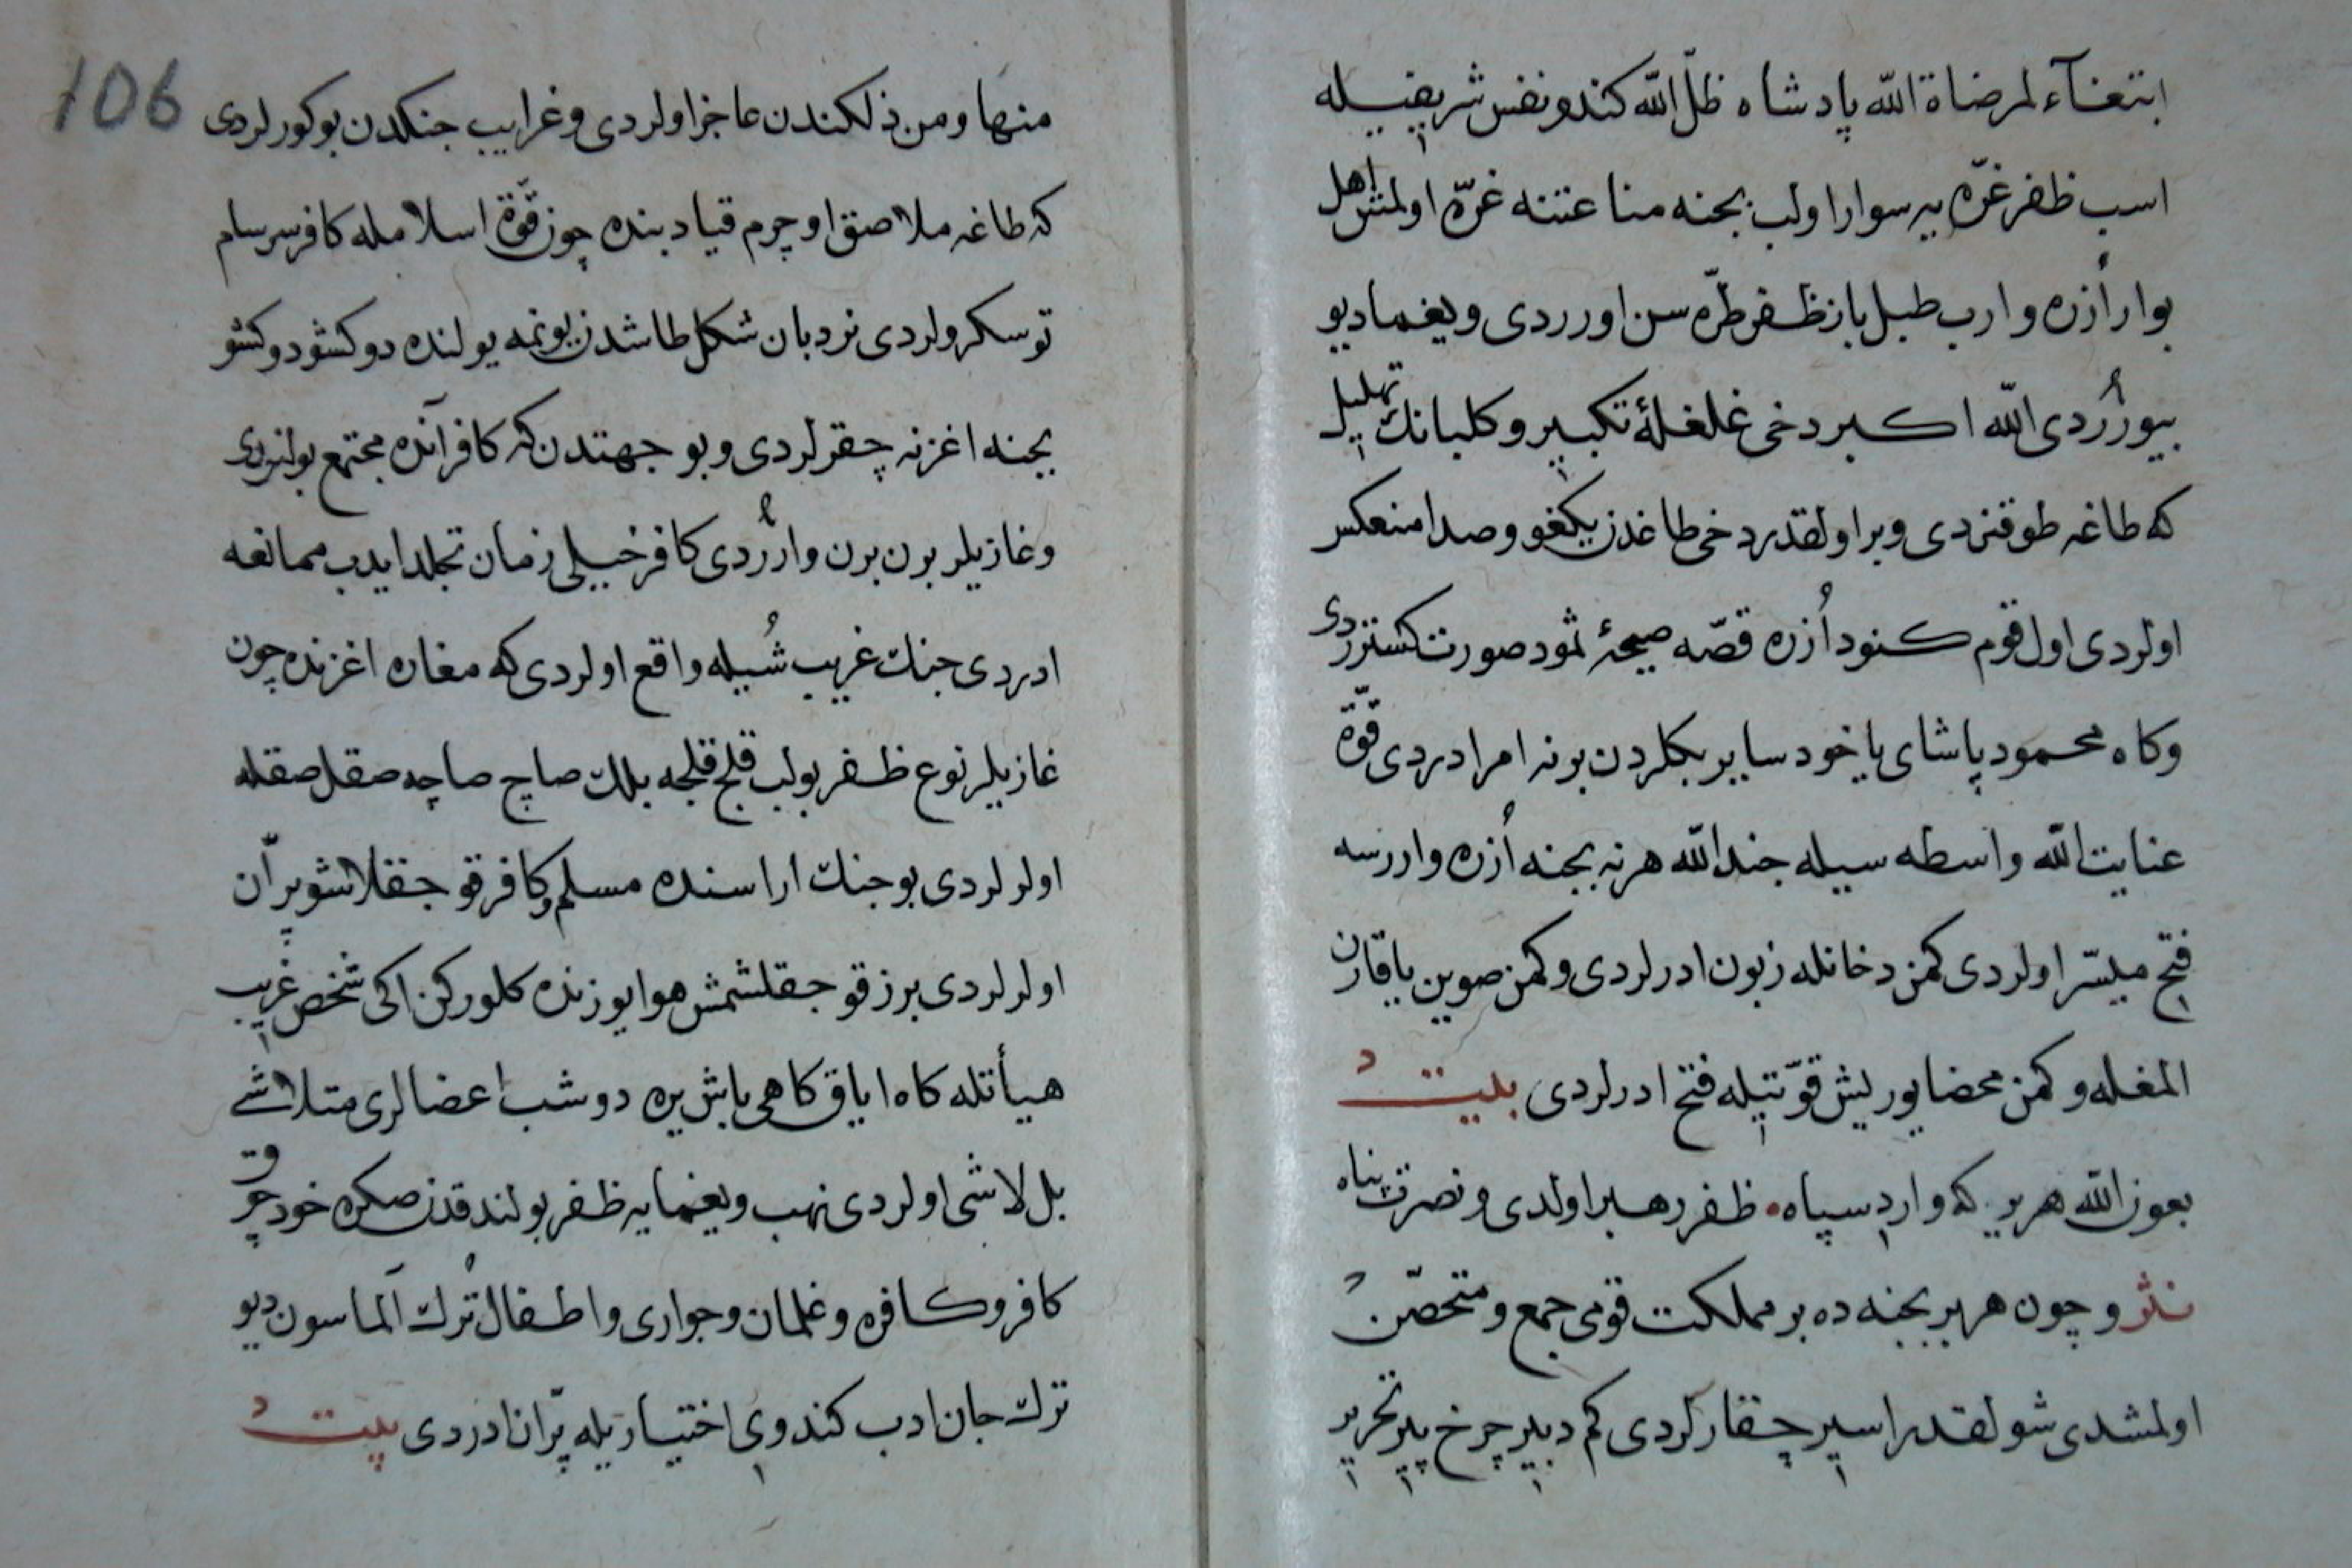 ابتغآء لمرضاة الله پادشاه ظلّ الله كندو نفس شريفيله
اسب ظفر غرّه يه سوار اولب بجنه مناعتنه غرّه اولمش اهل
بوار اُزره وارب طبل باز ظفر طرّه سن اورردى و يغما ديو
بيورُردى الله اكبر دخى غلغلهٔ تكبير و كلبانك تهليل
كه طاغه طوقنردى و بر اولقدر دخى طاغدن يكغو و صدا منعكس
اولردى اول قوم كنود اُزره قصّه صيحهٔ ثمود صورت كستررردى
وكاه محمود پاشاى يا خود ساير بكلردن برنه امر ادردى قوّة
عنايت الله واسطه سيله جند الله هر نه بجنه اُزره واررسه
فتح ميسّر اولردى كمن دخانله زبون ادرلردى و كمن صوين ياقارن
المغله و كمن محضا يوريش قوّتيله فتح ادرلردى بيت
بعون الله هر يره كه وارد سپاه ظفر رهبر اولدى و نصرت پناه
نثر و چون هر بر بجنه ده بر مملكت قومى جمع و متحصّن
اولمشدى شولقدر اسير چقارلردى كم دبير چرخ پير تحرير
106
منها ومن ذلكندن عاجز اولردى و غرايب جنكدن بو كورلردى
كه طاغه ملاصق اوچرم قيا دبنده چون قوّة اسلامله كافر سرسام
توسكرولردى نردبان شكل طاشدن يونمه يولنده دوكشو دوكشو
بجنه اغزنه چقرلردى و بو جهتدن كه كافر آنده مجتمع بولنردى
و غازيلر برن برن وارُردى كافر خيلى زمان تجلد ايدب ممانعه
ادردى جنك غريب شُيله واقع اولردى كه مغاره اغزنده چون
غازيلر نوع ظفر بولب قلج قلجه بلك صاچ صاچه صقل صقله
اولرلردى بو جنك اراسنده مسلم و كافر قوجقلاشو پرّان
اولرلردى برز قوجقلشمش هوا يوزنده كلوركن اكى شخص غريب
هيأتله كاه اياق كاهى باش يره دوشب اعضالرى متلاشى
بل لاشى اولردى نهب و يغمايه ظفر بولندقدن صكره خود چوق
كافر و كافره و غلمان و جوارى و اطفال تُرك آلماسون ديو
ترك جان ادب كندوى اختياريله پرّان ادردى بيت